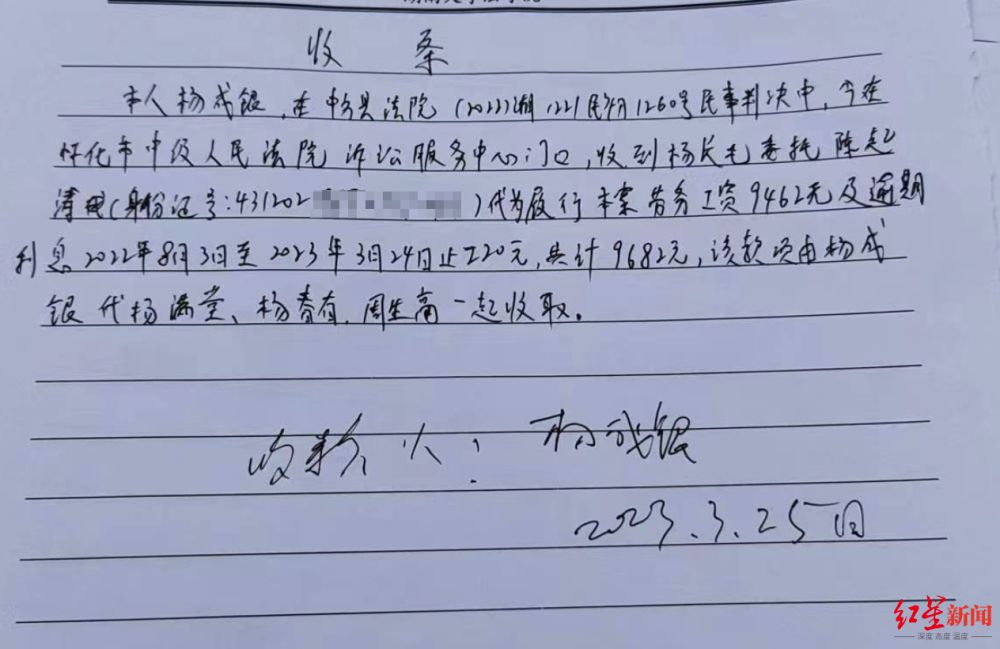 收条
本人杨成银，在中方县法院（2022）湘1221民初1260号民事判决中，今在
怀化市中级人民法院诉讼服务中心门口，收到杨长毛委托陈起
（身份证号：431202）代为履行本案劳务工资9462元及逾期
利息2022年8月3日至2023年3月24日止220元，共计9682元，该款项由杨成
银代杨满堂、杨春有、周生高一起收取。
收款人：杨成银
2023.3.25日
红星新闻
深度 高度 温度